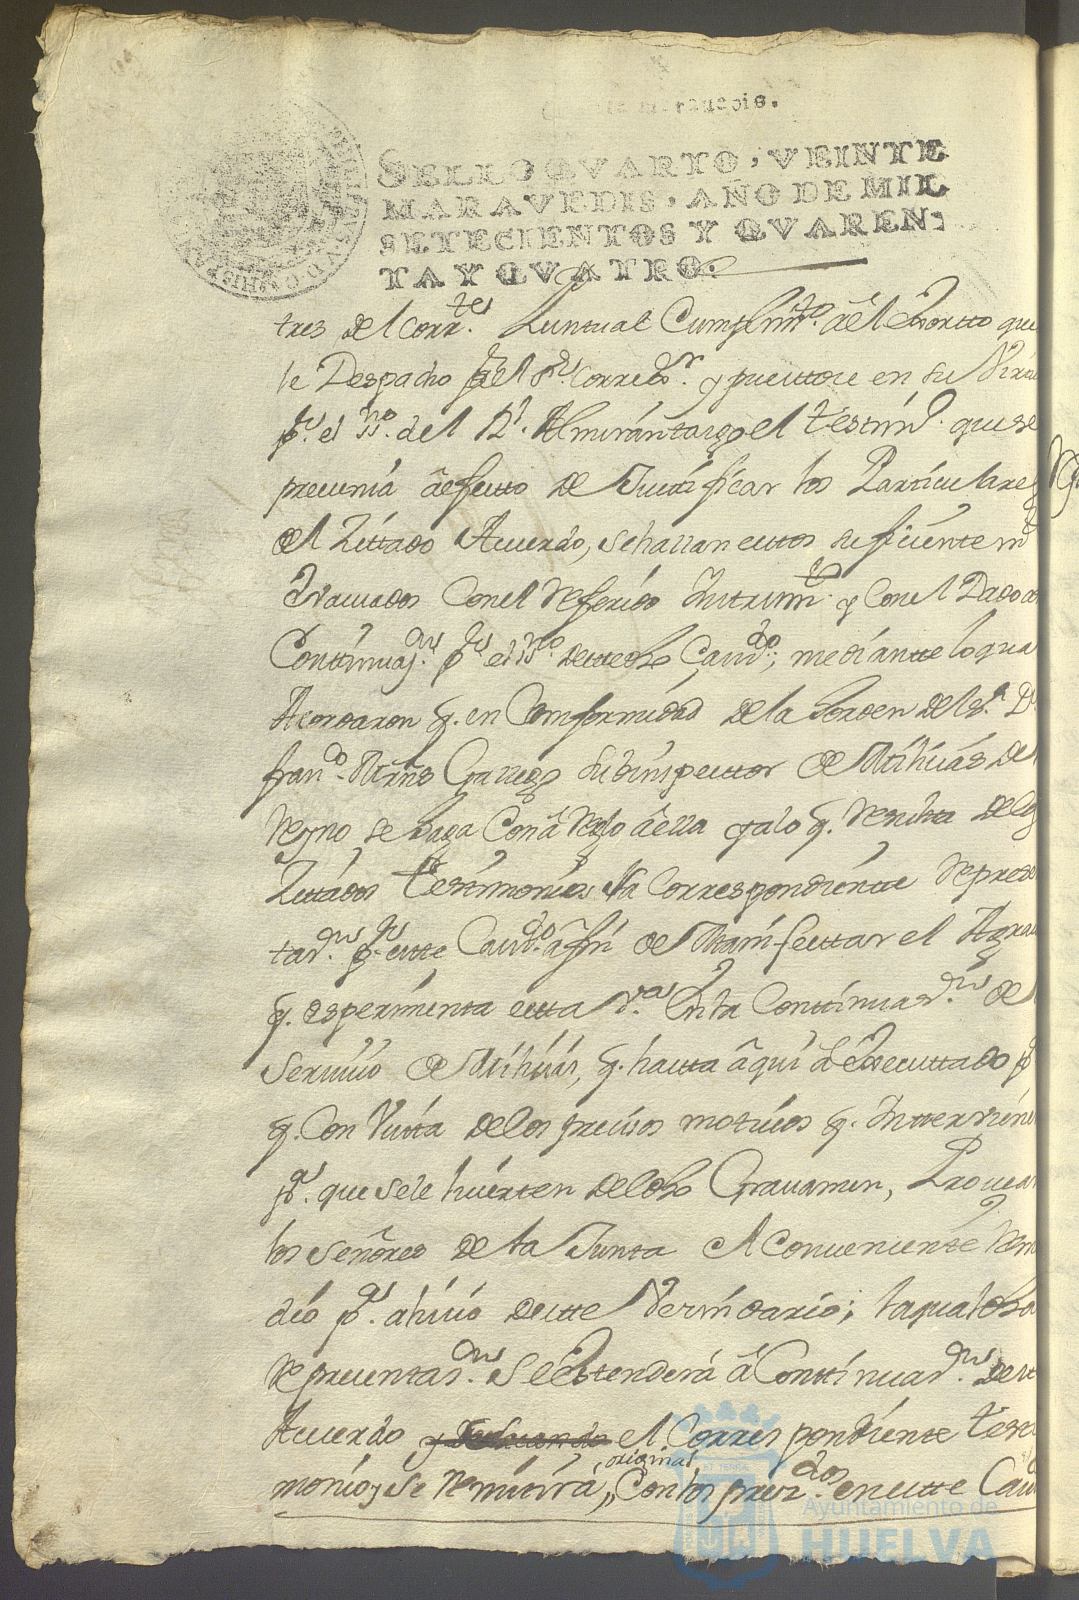 SELLO QVARTO, VEINTE
MARAVEDIS, AÑO DE MIL
SETECIENTOS Y QVAREN-
TA Y QVATRO.
tres del corr.tes Puntual Cumplim.to âel Exortto que
le Despacho el s.r Corre.or y
el ss.no del R.l Almirantazgo el testim.o que se
âefecto de Justificar los Particulares
del Zittado Acuerdo, sehallan estos suficientem.te
Evacuados Conel Referido Instrum.to y Con el Dado a
Continuaz.on p.r el ss.no deeste Cavd.o; mediantte lo qua
Acordaron q. en Comformidad de la horden del s.r D.
fran.co Mrñs Gallego Subinspector de Milizias de
Reyno se haga Con âReglo âella y alo q. Resulta delos
Zittados testimonios la Correspondientte Represen
taz.on p.r este Cavd.o âfin de Manifesttar el Agrav
q. esperimenta esta v.a En la Continuaz.on de
Servizio de Milizias, q. hasta âqui â Executtado p.
q. Con Vista delos precisos motivos q. Intterviene
p.a que sele liverten deldho Gravamen, Provean
los señores de la Junta el Conveniente Rem
dio p.a alivio deeste Vezindario; laqual dha
Represenntaz.on seEstenderá â Continuaz.on deste
Acuerdo el Correspondiente testi
monio y se Remitirá, original, Con los en este Cavd
Ayuntamiento de
HUELVA